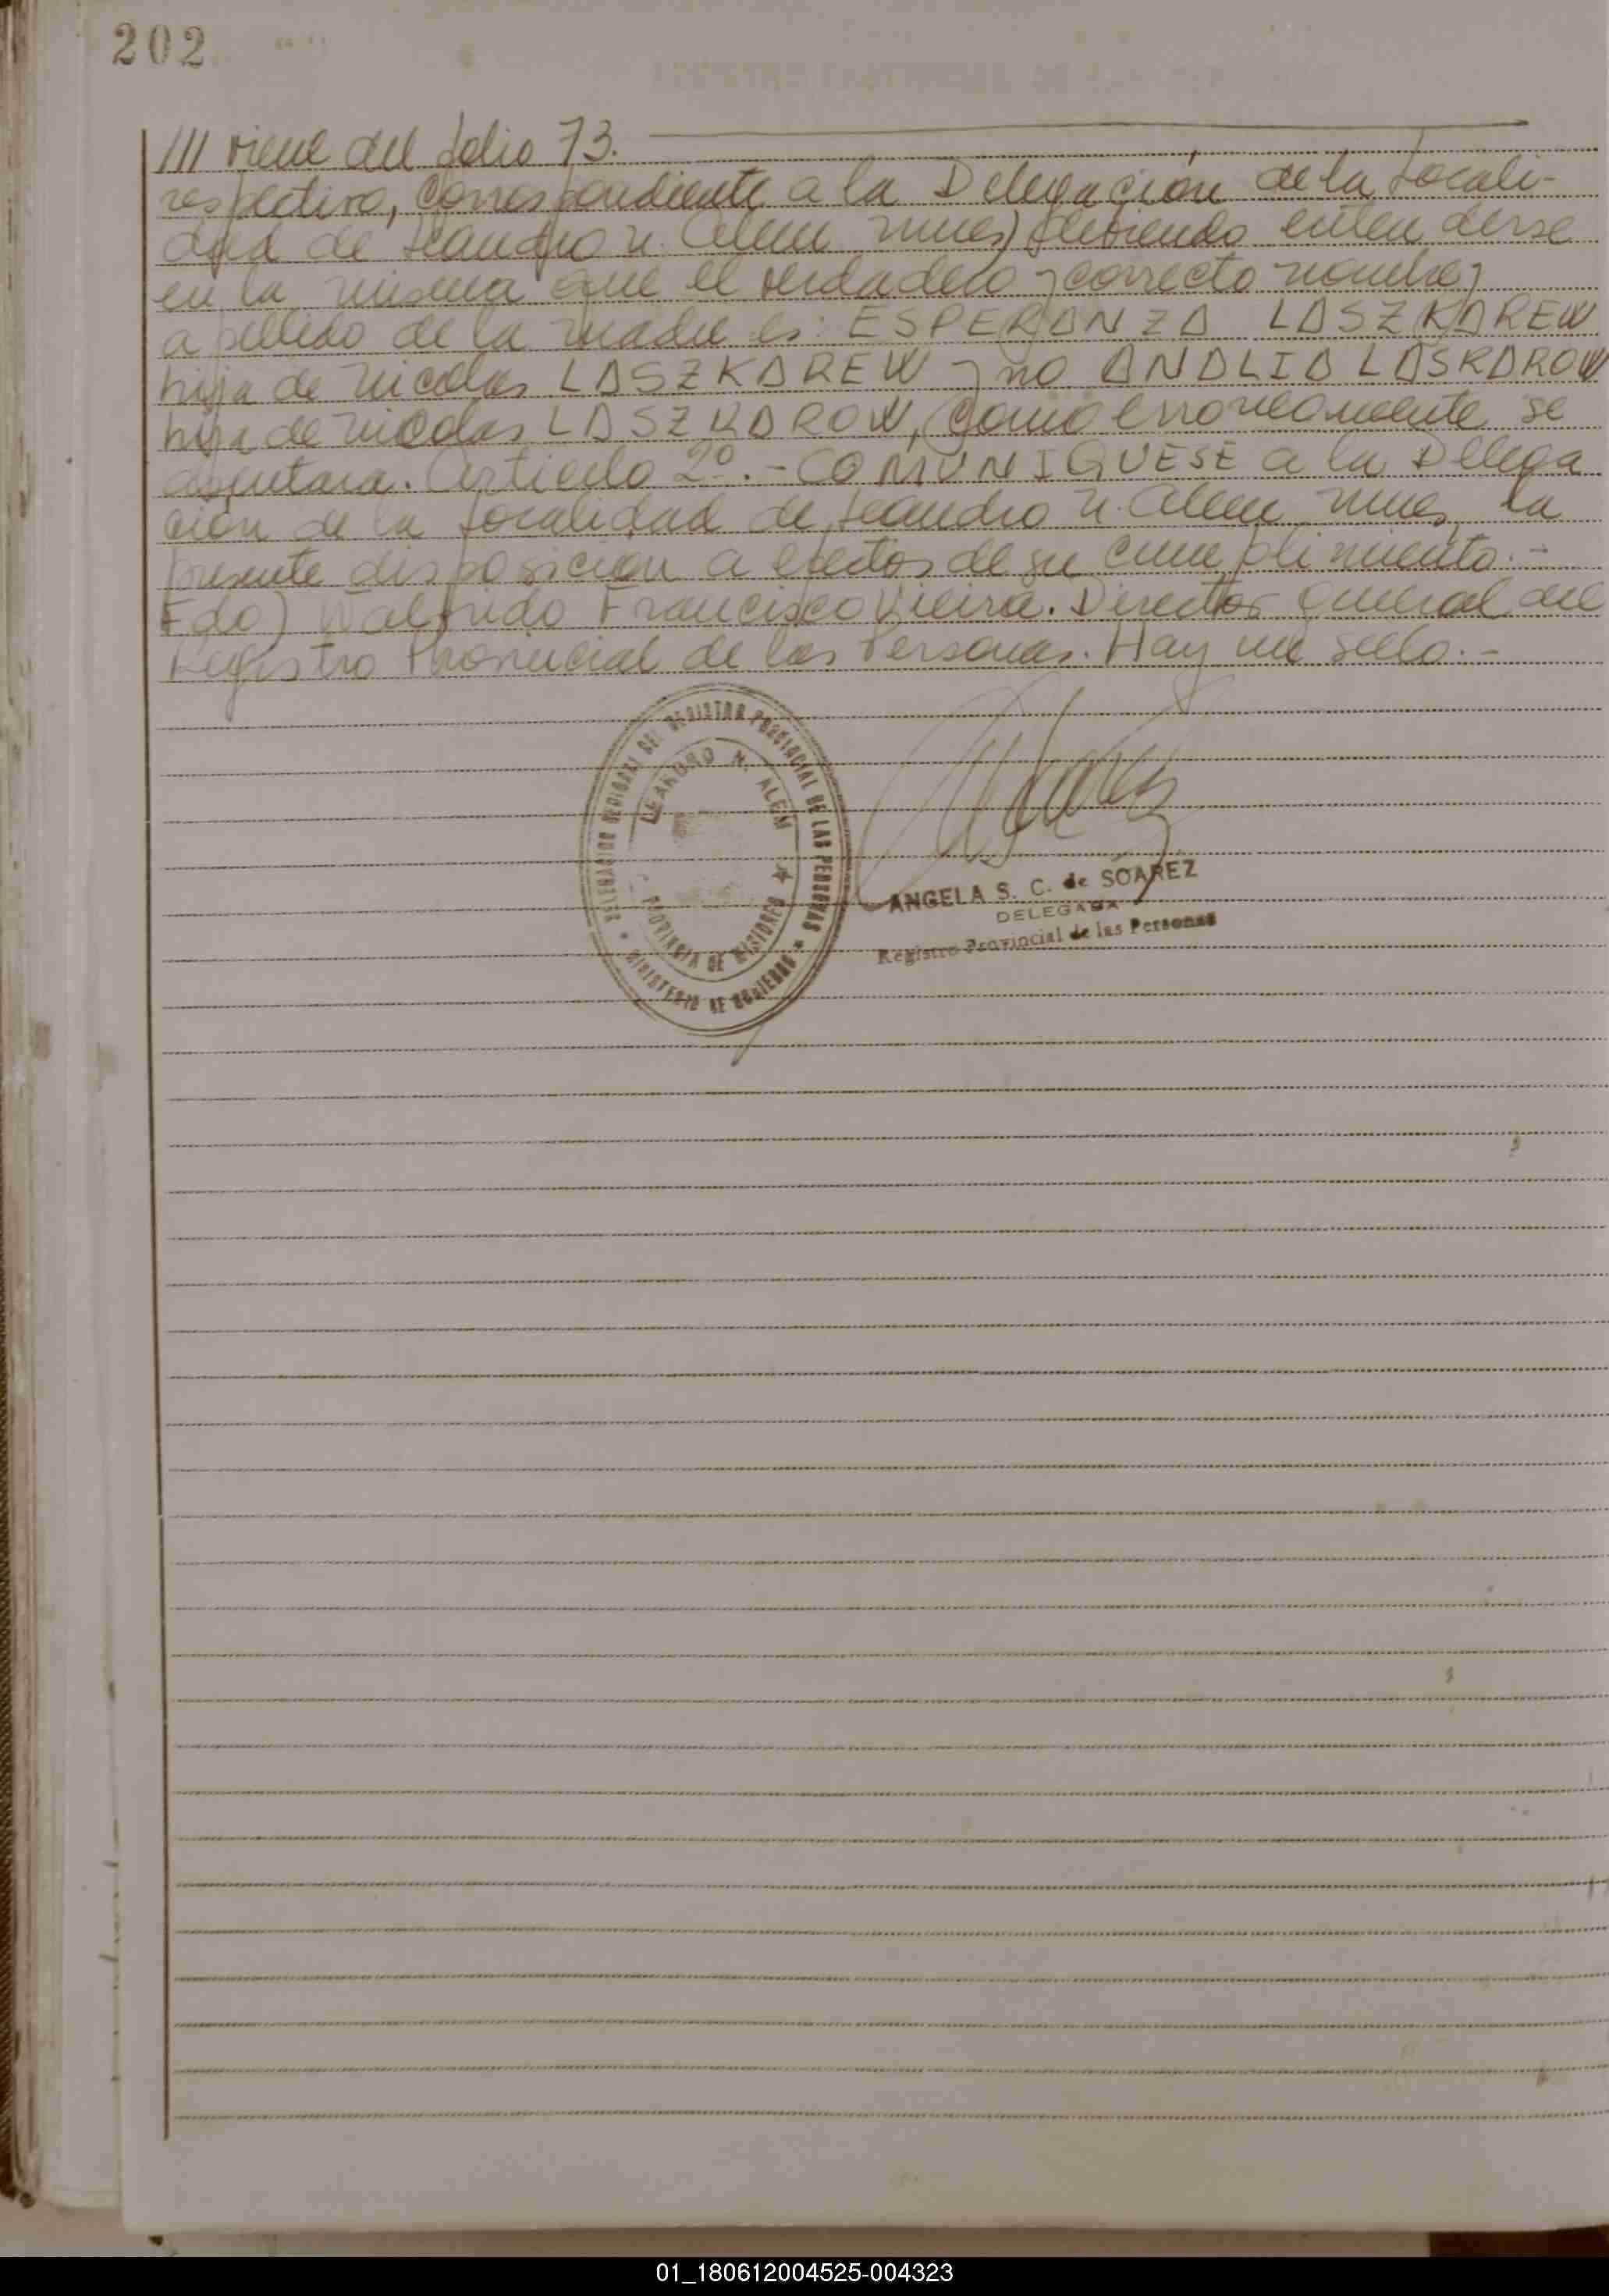 202
/// viene del folio 73.
respectivo, correspondiente a la Delegación de la Locali-
dad de Leandro N. Alem Mnes) debiendo entenderse
en la misma que el verdadero y correcto nombre y
apellido de la madre es: ESPERANZA LASZKAREW
hija de Nicolas LASZKAREW y no ANALIA LASKAROW
hija de Nicolas LASZKAROW, como erroneamente se
asentara. Articulo 2º.- COMUNIQUESE a la Delega
ción de la localidad de Leandro N. Alem Mnes, la
presente disposición a efectos de su cumplimiento.-
Fdo) Walfrido Francisco Vieira. Director General del
Registro Provincial de las Personas. Hay un sello.-
DELEGACION REGIONAL DEL REGISTRO PROVINCIAL DE LAS PERSONAS
LEANDRO N. ALEM
PROVINCIA DE MISIONES
MINISTERIO DE GOBIERNO
ANGELA S. C. de SOAREZ
DELEGADA
Registro Provincial de las Personas
01_180612004525-004323